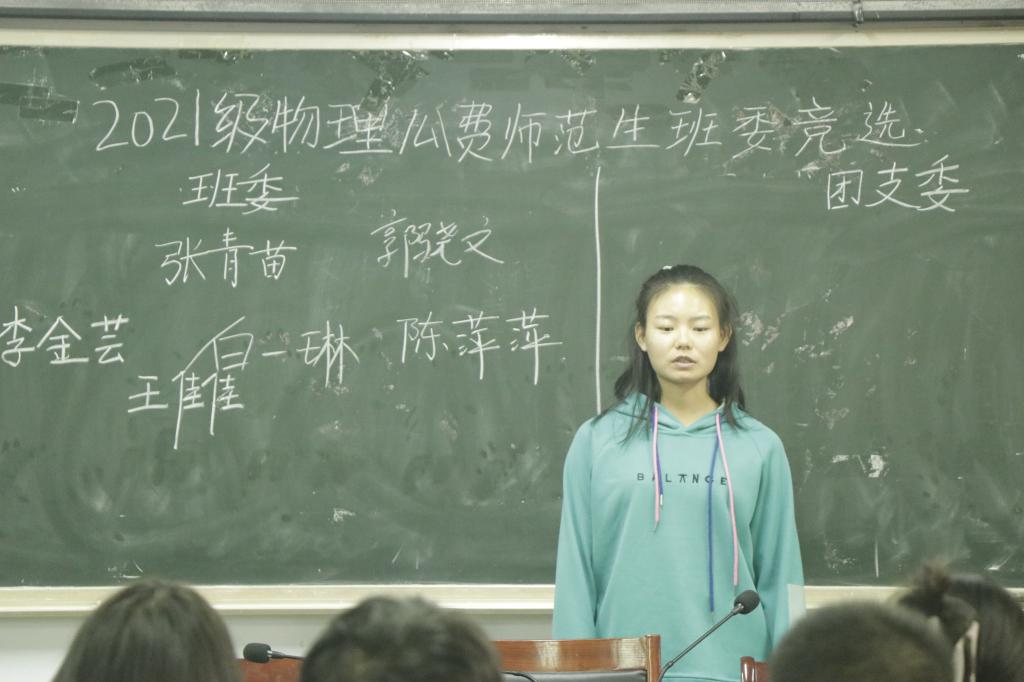 2021级物理公费师范生班委竞选
班委
团支委
张青苗 郭骁文
李金芸 白一琳 陈萍萍
王佳佳
BALANCE